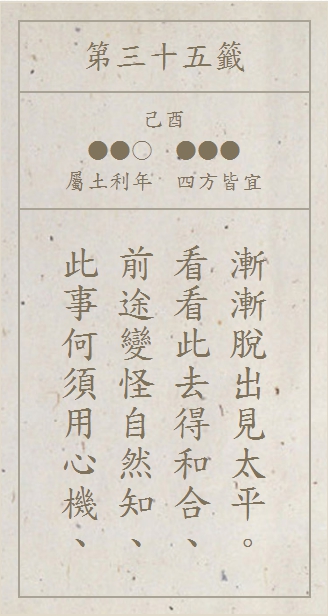 第三十五籤
己酉
●●○ ●●●
屬土利年 四方皆宜
此事何須用心機、
前途變怪自然知、
看看此去得和合、
漸漸脫出見太平。